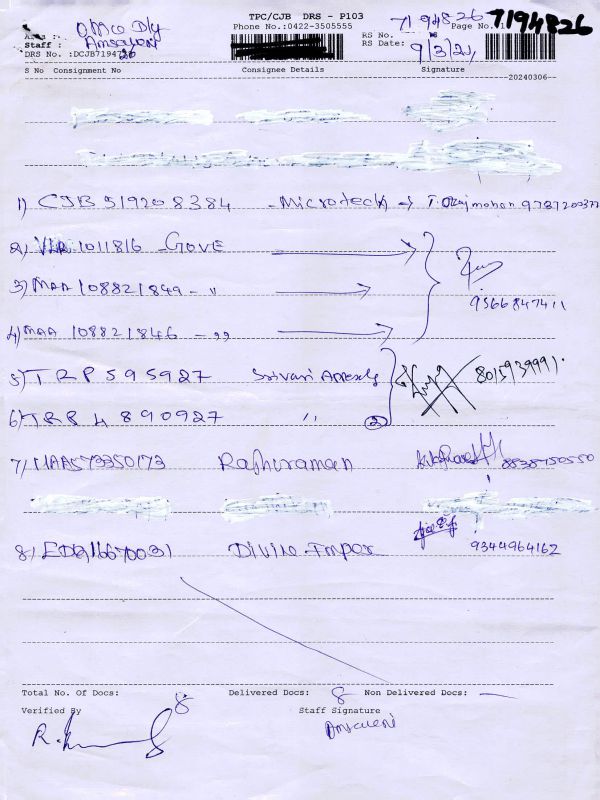 TPC/CJB DRS - P103
Phone No.:0422-3505555
7194826 7194826
Office Dly
Page No. 1
Staff :
RS No.
RS Date: 9/3/24
DRS No. :DCJB7194726
S No Consignment No Consignee Details Signature
20240306
1) CJB 519208384 - Microtech T. Rajmohan
2) 1011816 - GOVE
3) MAA 108821849 - "
9566847411
4) MAA 108821846 - "
5) TRP 595927 Srivari 8015939991
6) TRP 4890927 " 2
7) MAA573350173 Raghuraman 8838750550
8) 16670031 Divine Impex 9344964162
Total No. Of Docs: 8 Delivered Docs: 8 Non Delivered Docs: —
Verified By Staff Signature